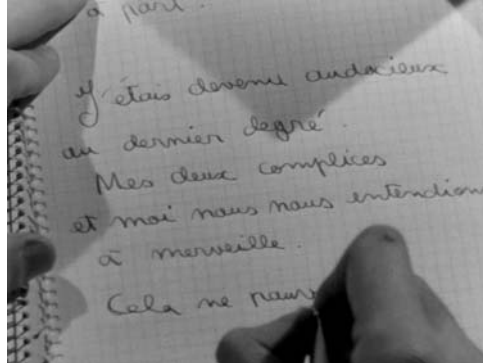 à part.
J'étais devenu audacieux
au dernier degré.
Mes deux complices
et moi nous nous entendions
à merveille.
Cela ne